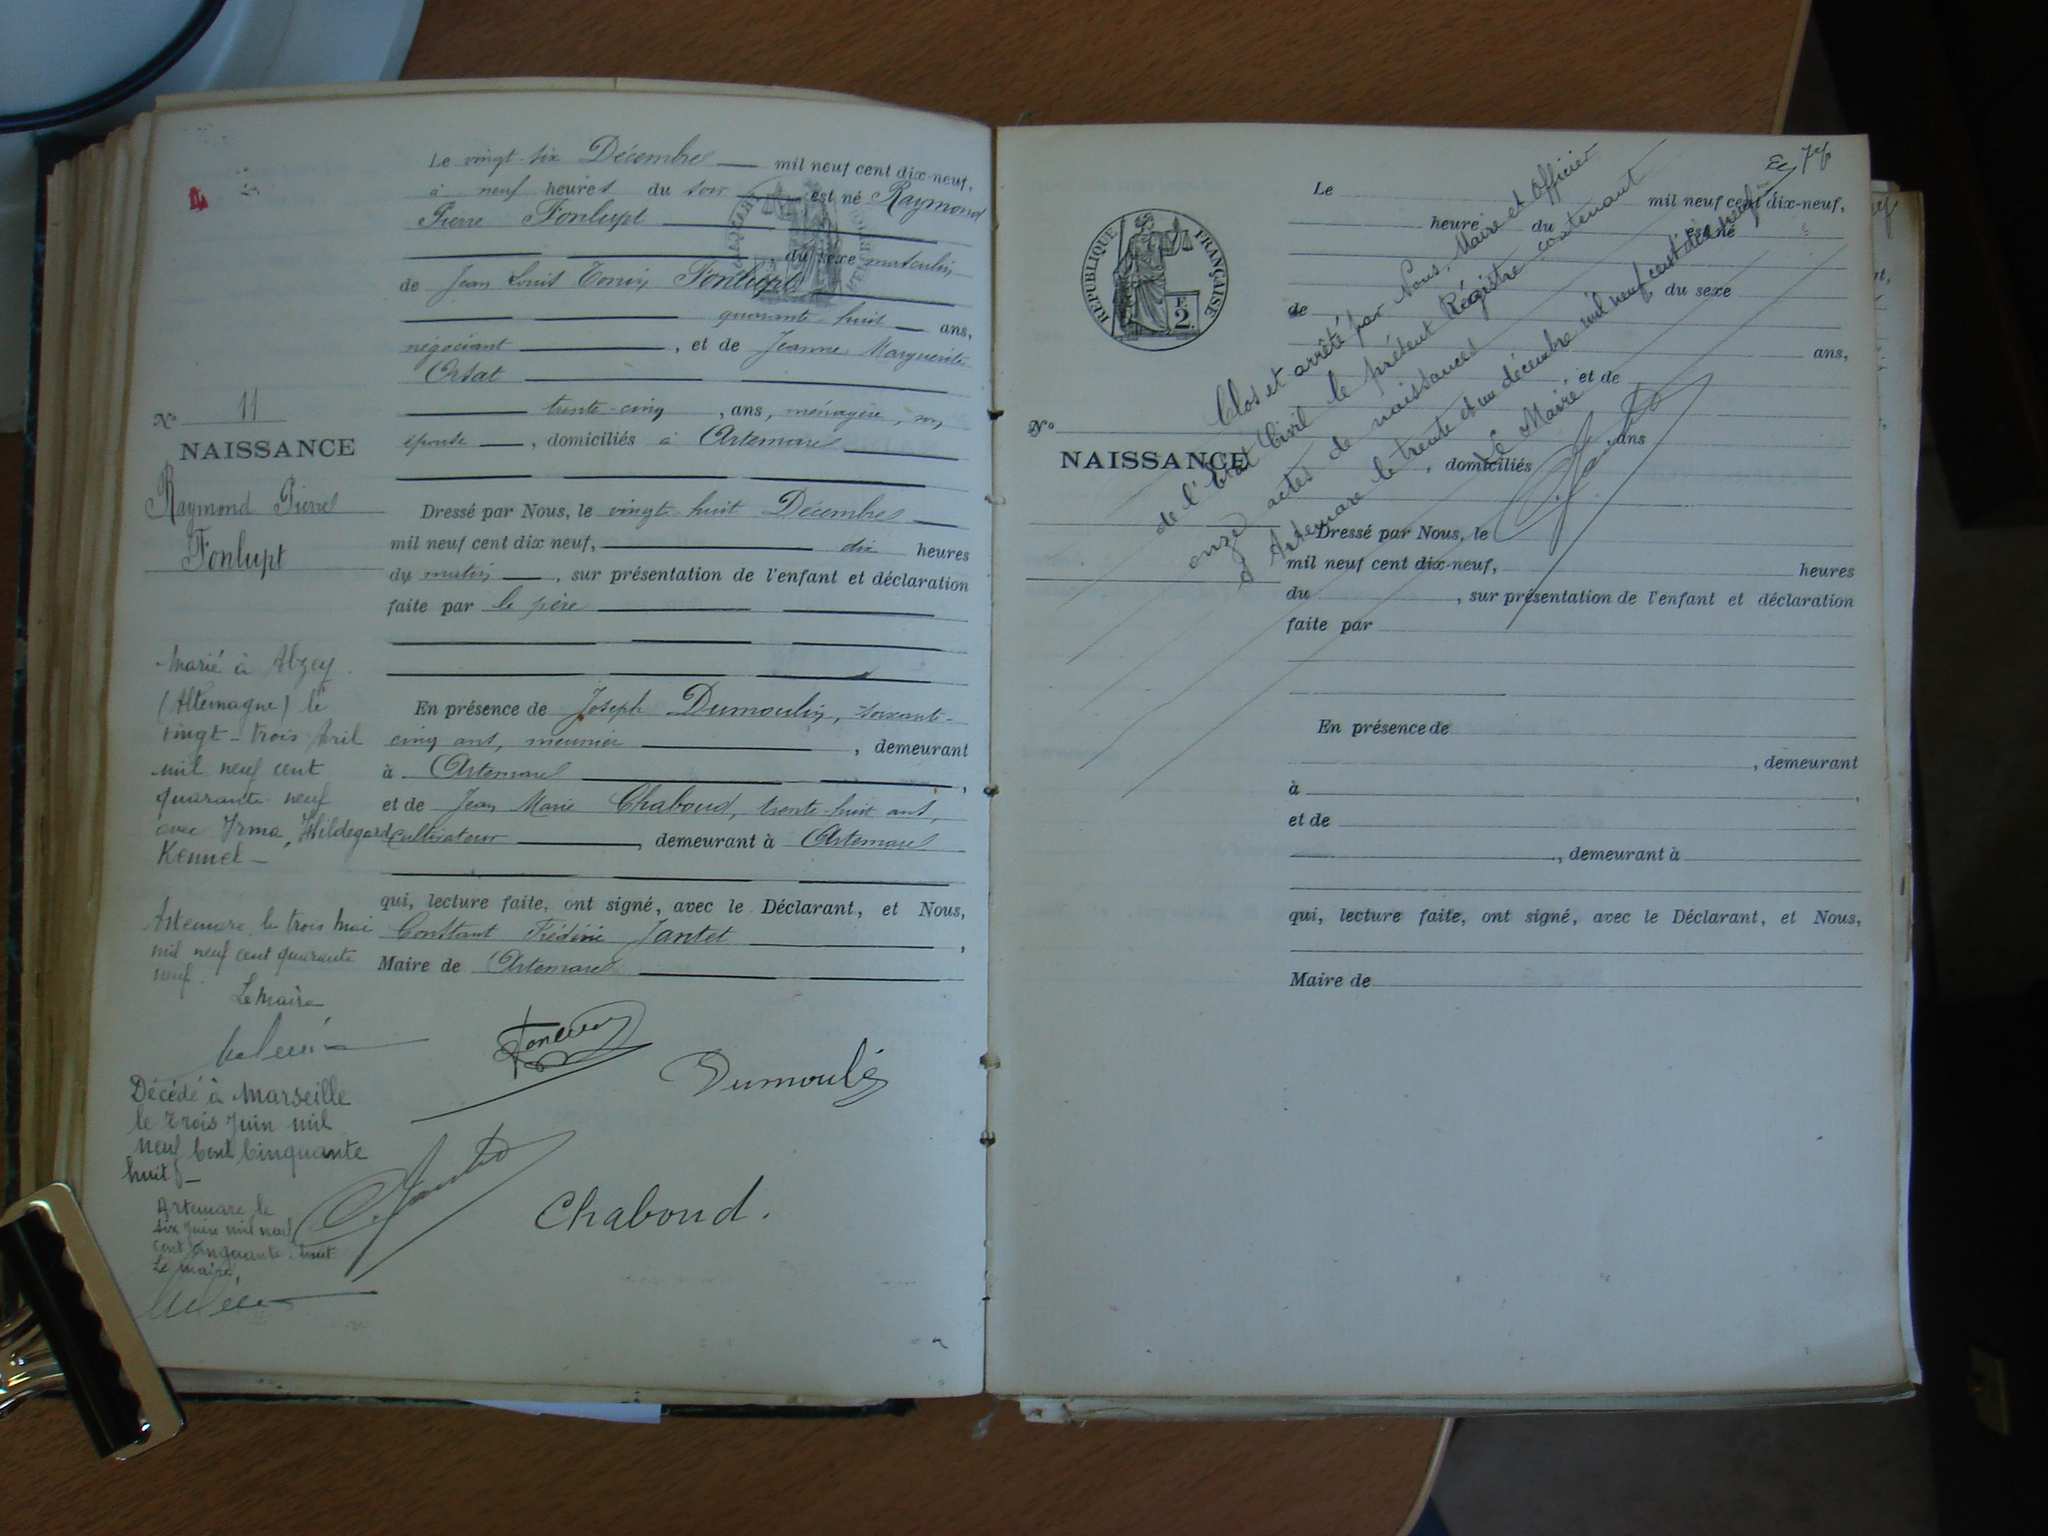 Le vingt-six Décembre mil neuf cent dix-neuf,
à neuf heures du soir est né Raymond
Pierre Fonlupt
du sexe masculin
de Jean Louis Fonlupt
quarante-huit ans,
négociant, et de Jeanne Marguerite
Orsat
trente-cinq, ans, ménagère, son
épouse, domiciliés à Artemare
No 11
NAISSANCE
Raymond Pierre
Fonlupt
Dressé par Nous, le vingt-huit Décembre
mil neuf cent dix neuf, dix heures
du matin, sur présentation de l'enfant et déclaration
faite par le père
En présence de Joseph Dumoulin, soixante-
cinq ans, meunier, demeurant
à Artemare,
et de Jean Marie Chaboud, trente-huit ans,
cultivateur, demeurant à Artemare
qui, lecture faite, ont signé, avec le Déclarant, et Nous,
Constant Frédéric Jantet,
Maire de Artemare
Marié à Alzey
(Allemagne) le
vingt-trois Avril
mil neuf cent
quarante-neuf
avec Irma, Hildegard
Kennel
Artemare, le trois Mai
mil neuf cent quarante
neuf.
Le Maire
Décédé à Marseille
le trois Juin mil
neuf Cent Cinquante
huit
Artemare le
six Juin mil neuf
cent cinquante-huit
Le Maire,
Fonlupt
Dumoulin
C. Jantet
Chaboud.
REPUBLIQUE FRANÇAISE
2F
Le mil neuf cent dix-neuf,
heure du est né
du sexe
de
ans,
et de
No
NAISSANCE
, ans
, domiciliés
Dressé par Nous, le
mil neuf cent dix-neuf, heures
du, sur présentation de l'enfant et déclaration
faite par
En présence de
, demeurant
à,
et de
, demeurant à
qui, lecture faite, ont signé, avec le Déclarant, et Nous,
Maire de
Clos et arrêté par Nous, Maire et Officier
de l'Etat Civil le présent Régistre contenant
onze actes de naissances
à Artemare le trente et un décembre mil neuf cent dix neuf
Le Maire
C. Jantet